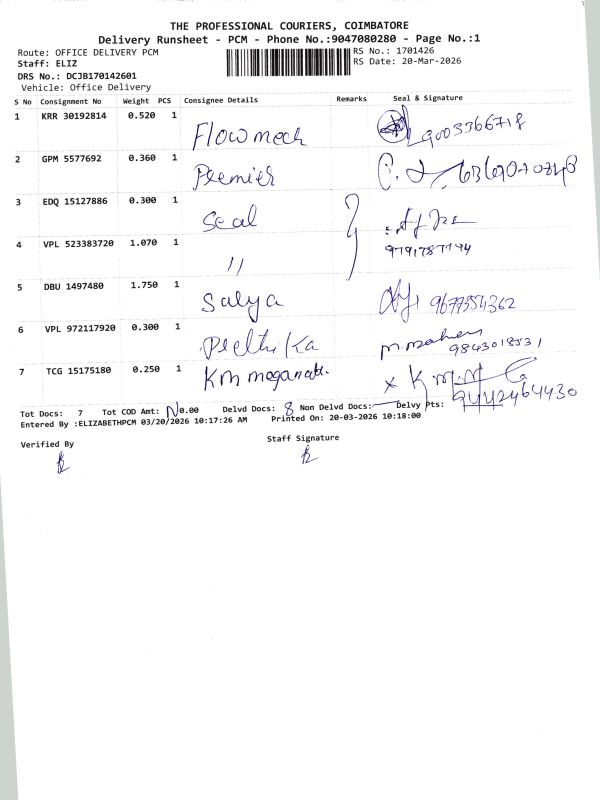 THE PROFESSIONAL COURIERS, COIMBATORE
Delivery Runsheet - PCM - Phone No.:9047080280 - Page No.:1
Route: OFFICE DELIVERY PCM RS No.: 1701426
Staff: ELIZ RS Date: 20-Mar-2026
DRS No.: DCJB170142601
Vehicle: Office Delivery
S No Consignment No Weight PCS Consignee Details Remarks Seal & Signature
1 KRR 30192814 0.520 1 Flowmech 9003366718
2 GPM 5577692 0.360 1 Premier
3 EDQ 15127886 0.300 1 Seal
4 VPL 523383720 1.070 1 " 9791787794
5 DBU 1497480 1.750 1 Salya 9677354362
6 VPL 972117920 0.300 1 9843018531
7 TCG 15175180 0.250 1 Km 9442464430
Tot Docs: 7 Tot COD Amt: 0.00 Delvd Docs: 8 Non Delvd Docs: Delvy Pts:
Entered By :ELIZABETHPCM 03/20/2026 10:17:26 AM Printed On: 20-03-2026 10:18:00
Verified By Staff Signature